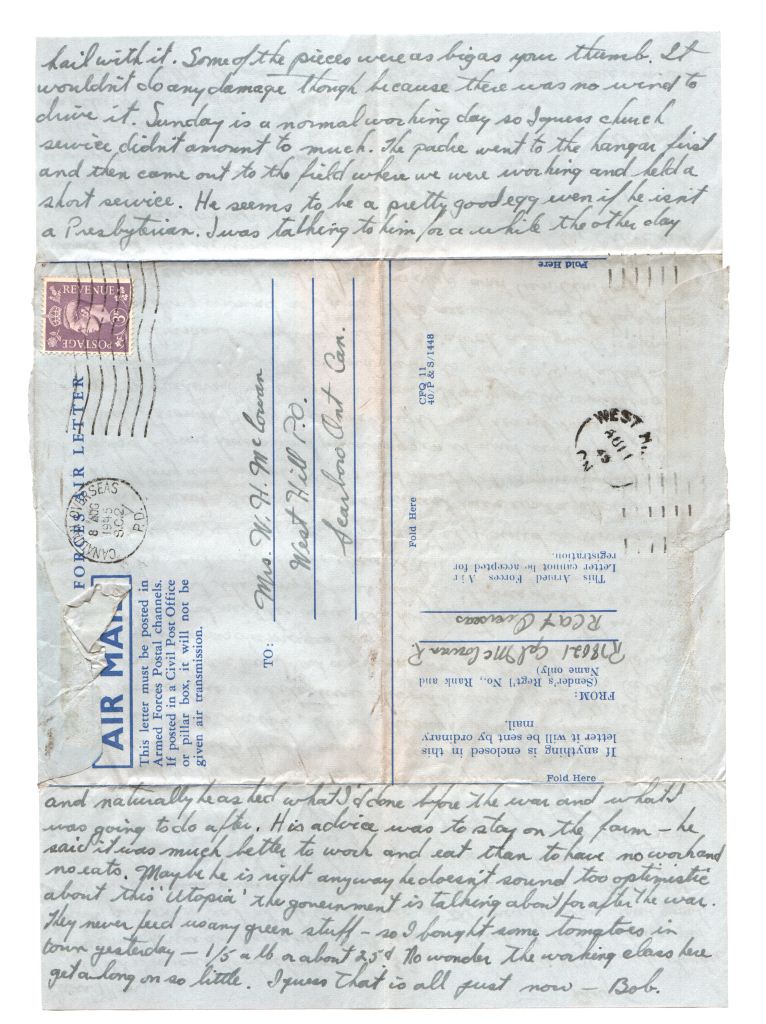 hail with it. Some of the pieces were as big as your thumb. It
wouldn't do any damage though because there was no wind to
drive it. Sunday is a normal working day so I guess church
service didn't amount to much. The padre went to the hangar first
and then came out to the field where we were working and held a
short service. He seems to be a pretty good egg even if he isn't
a Presbyterian. I was talking to him for a while the other day
REVENUE
3D
POSTAGE
FORCES AIR LETTER
CANADIAN OVERSEAS
8 AUG
1945
S.C.2.
P.D.
AIR MAIL
This letter must be posted in
Armed Forces Postal channels.
If posted in a Civil Post Office
or pillar box, it will not be
given air transmission.
TO:
Mrs. W. H. McCowan
West Hill P.O.
Scarboro Ont Can.
Fold Here
CFQ 11
40/P & S/1448
WEST
AU 11
45
Fold Here
This Armed Forces Air
Letter cannot be accepted for
registration.
RCAF Overseas
Cpl McCowan R
(Sender's Regt'l No., Rank and
Name only)
FROM:
If anything is enclosed in this
letter it will be sent by ordinary
mail.
Fold Here
and naturally he asked what I'd done before the war and what I
was going to do after. His advice was to stay on the farm – he
said it was much better to work and eat than to have no work and
no eats. Maybe he is right anyway he doesn't sound too optimistic
about this 'Utopia' the government is talking about for after the war.
They never feed us any green stuff – so I bought some tomatoes in
town yesterday – 1/5 a lb or about 25¢ No wonder the working class here
get along on so little. I guess that is all just now – Bob.